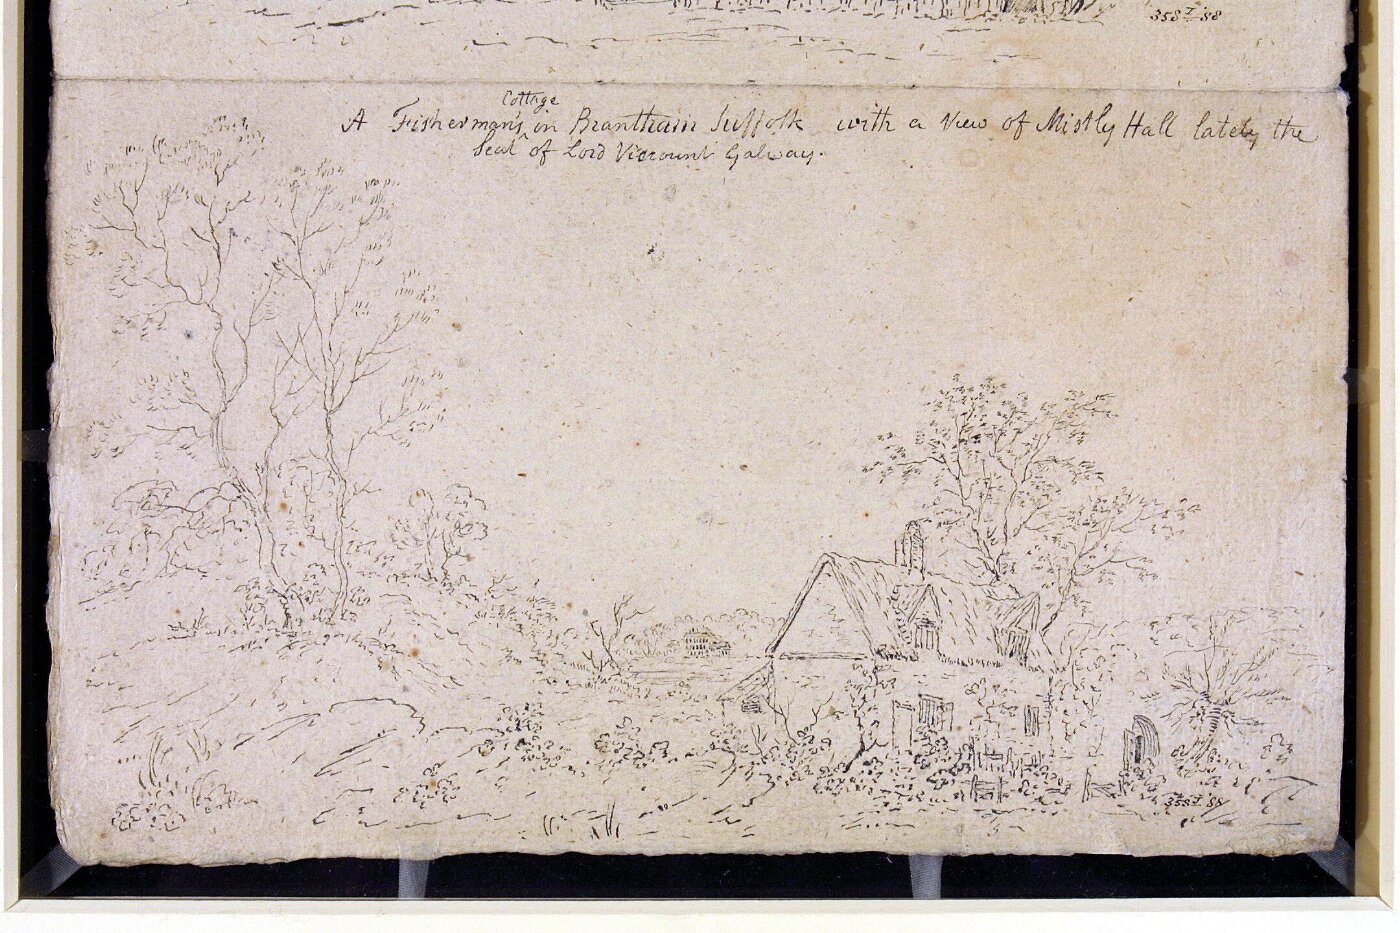 358I '88
Cottage
A Fisherman's ^ in Brantham Suffolk with a View of Mistly Hall lately the
Seat of Lord Viscount Galway.
358I '88